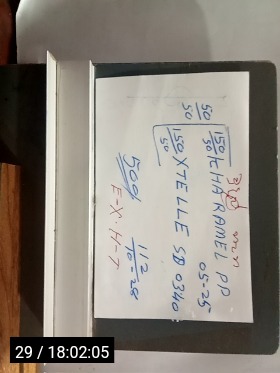 50/50
150/50 CHARAMEL PP 05-25
150/50 XTELLE SD 0340
500
112/10-28
F-X.H-7
29 / 18:02:05